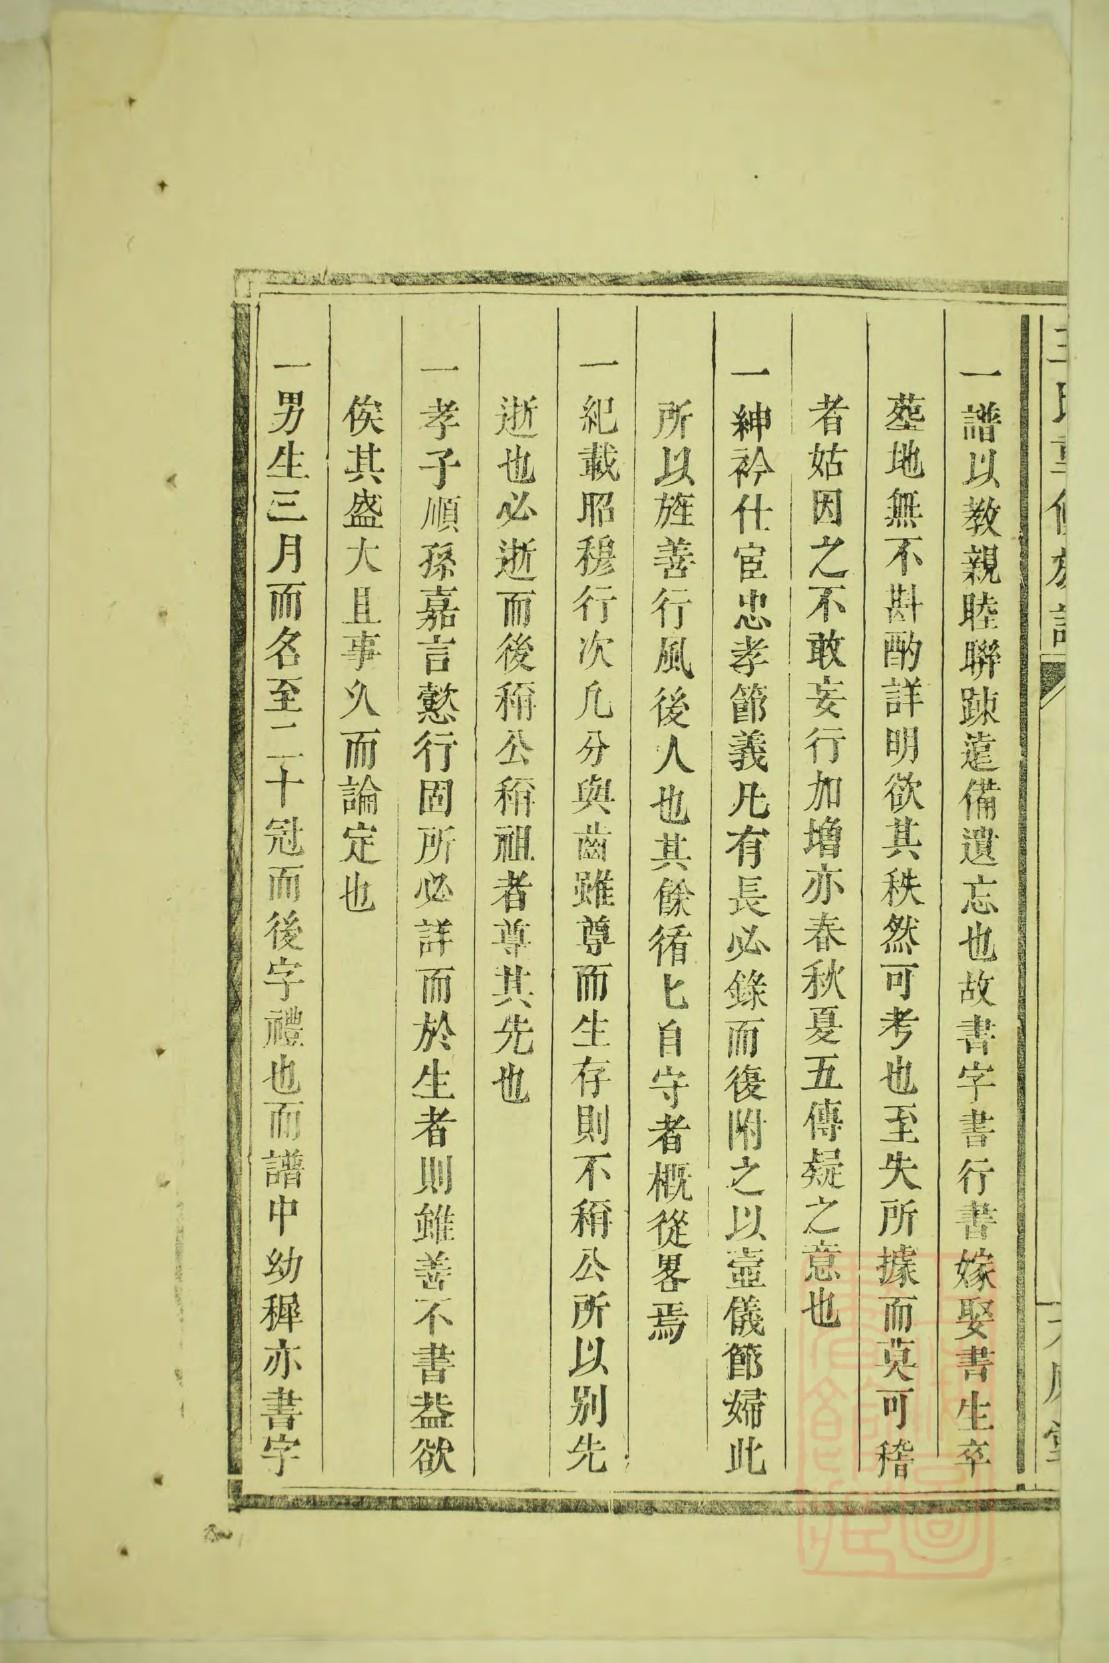 一譜以教親睦聯踈遠備遺忘也故書字書行書嫁娶書生卒
塟地無不斟酌詳明欲其秩然可考也至失所據而莫可稽
者姑因之不敢妄行加增亦春秋夏五傳疑之意也
一紳衿仕宦忠孝節義凡有長必錄而復附之以壼儀節婦此
所以旌善行風後人也其餘循匕自守者概從畧焉
一紀載昭穆行次凢分與齒雖尊而生存則不稱公所以別先
逝也必逝而後稱公稱祖者尊其先也
一孝子順孫嘉言懿行固所必詳而於生者則雖善不書葢欲
俟其盛大且事久而論定也
一男生三月而名至二十冠而後字禮也而譜中幼穉亦書字